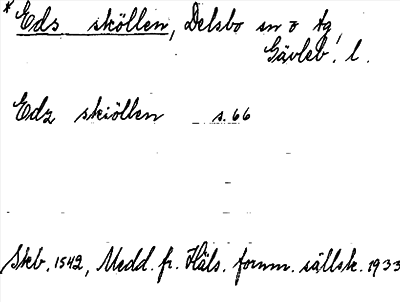 * Eds sköllen, Delsbo sn o tg,
Gävleb. l.
Edz skiöllen s. 66
Skb. 1542, Medd. fr. Häls. fornm. sällsk. 1933